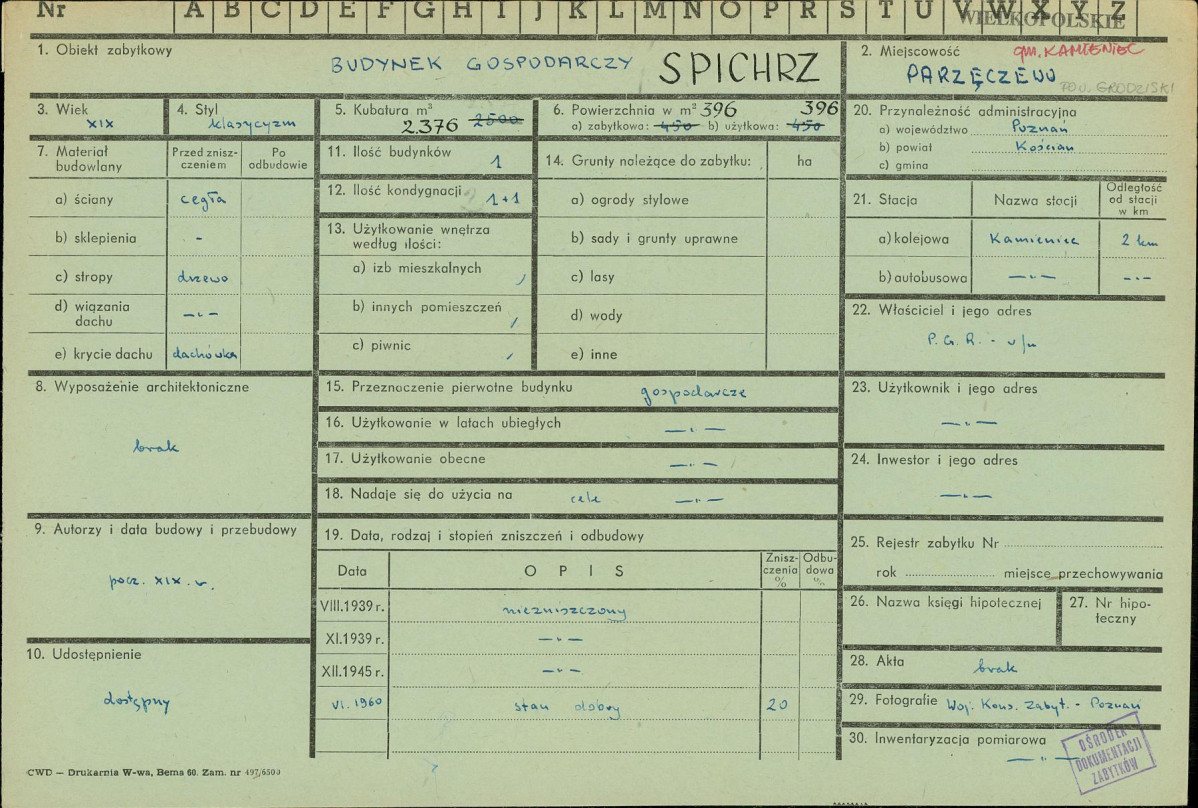 Nr A B C D E F G H I J K L M N O P R S T U V W X Y Z
WIELKOPOLSKIE
1. Obiekt zabytkowy
BUDYNEK GOSPODARCZY SPICHRZ
2. Miejscowość gm. KAMIENIEC
PARZĘCZEWO
POW. GRODZISKI
3. Wiek
XIX
4. Styl
klasycyzm
5. Kubatura m³
2.376 2500
6. Powierzchnia w m² 396 396
a) zabytkowa: 450 b) użytkowa: 450
7. Materiał budowlany
Przed zniszczeniem
Po odbudowie
a) ściany cegła
b) sklepienia -
c) stropy drzewo
d) wiązania dachu —„—
e) krycie dachu dachówka
8. Wyposażenie architektoniczne
brak
9. Autorzy i data budowy i przebudowy
pocz. XIX. w.
10. Udostępnienie
dostępny
11. Ilość budynków 1
12. Ilość kondygnacji 1+1
13. Użytkowanie wnętrza
według ilości:
a) izb mieszkalnych /
b) innych pomieszczeń /
c) piwnic /
14. Grunty należące do zabytku: ha
a) ogrody stylowe
b) sady i grunty uprawne
c) lasy
d) wody
e) inne
15. Przeznaczenie pierwotne budynku gospodarcze
16. Użytkowanie w latach ubiegłych —„—
17. Użytkowanie obecne —„—
18. Nadaje się do użycia na cele —„—
19. Data, rodzaj i stopień zniszczeń i odbudowy
Data OPIS Zniszczenia % Odbudowa %
VIII.1939 r. niezniszczony
XI.1939 r. —„—
XII.1945 r. —„—
VI. 1960 stan dobry 20
20. Przynależność administracyjna
a) województwo Poznań
b) powiat Kościan
c) gmina
21. Stacja Nazwa stacji Odległość od stacji w km
a) kolejowa Kamieniec 2 km
b) autobusowa —„— —„—
22. Właściciel i jego adres
P.G.R. - w/m
23. Użytkownik i jego adres
—„—
24. Inwestor i jego adres
—„—
25. Rejestr zabytku Nr
rok miejsce przechowywania
26. Nazwa księgi hipotecznej
27. Nr hipoteczny
28. Akta brak
29. Fotografie Woj. Kons. Zabyt. - Poznań
30. Inwentaryzacja pomiarowa
—„—
OŚRODEK
DOKUMENTACJI
ZABYTKÓW
CWD — Drukarnia W-wa, Bema 60. Zam. nr 497/6500